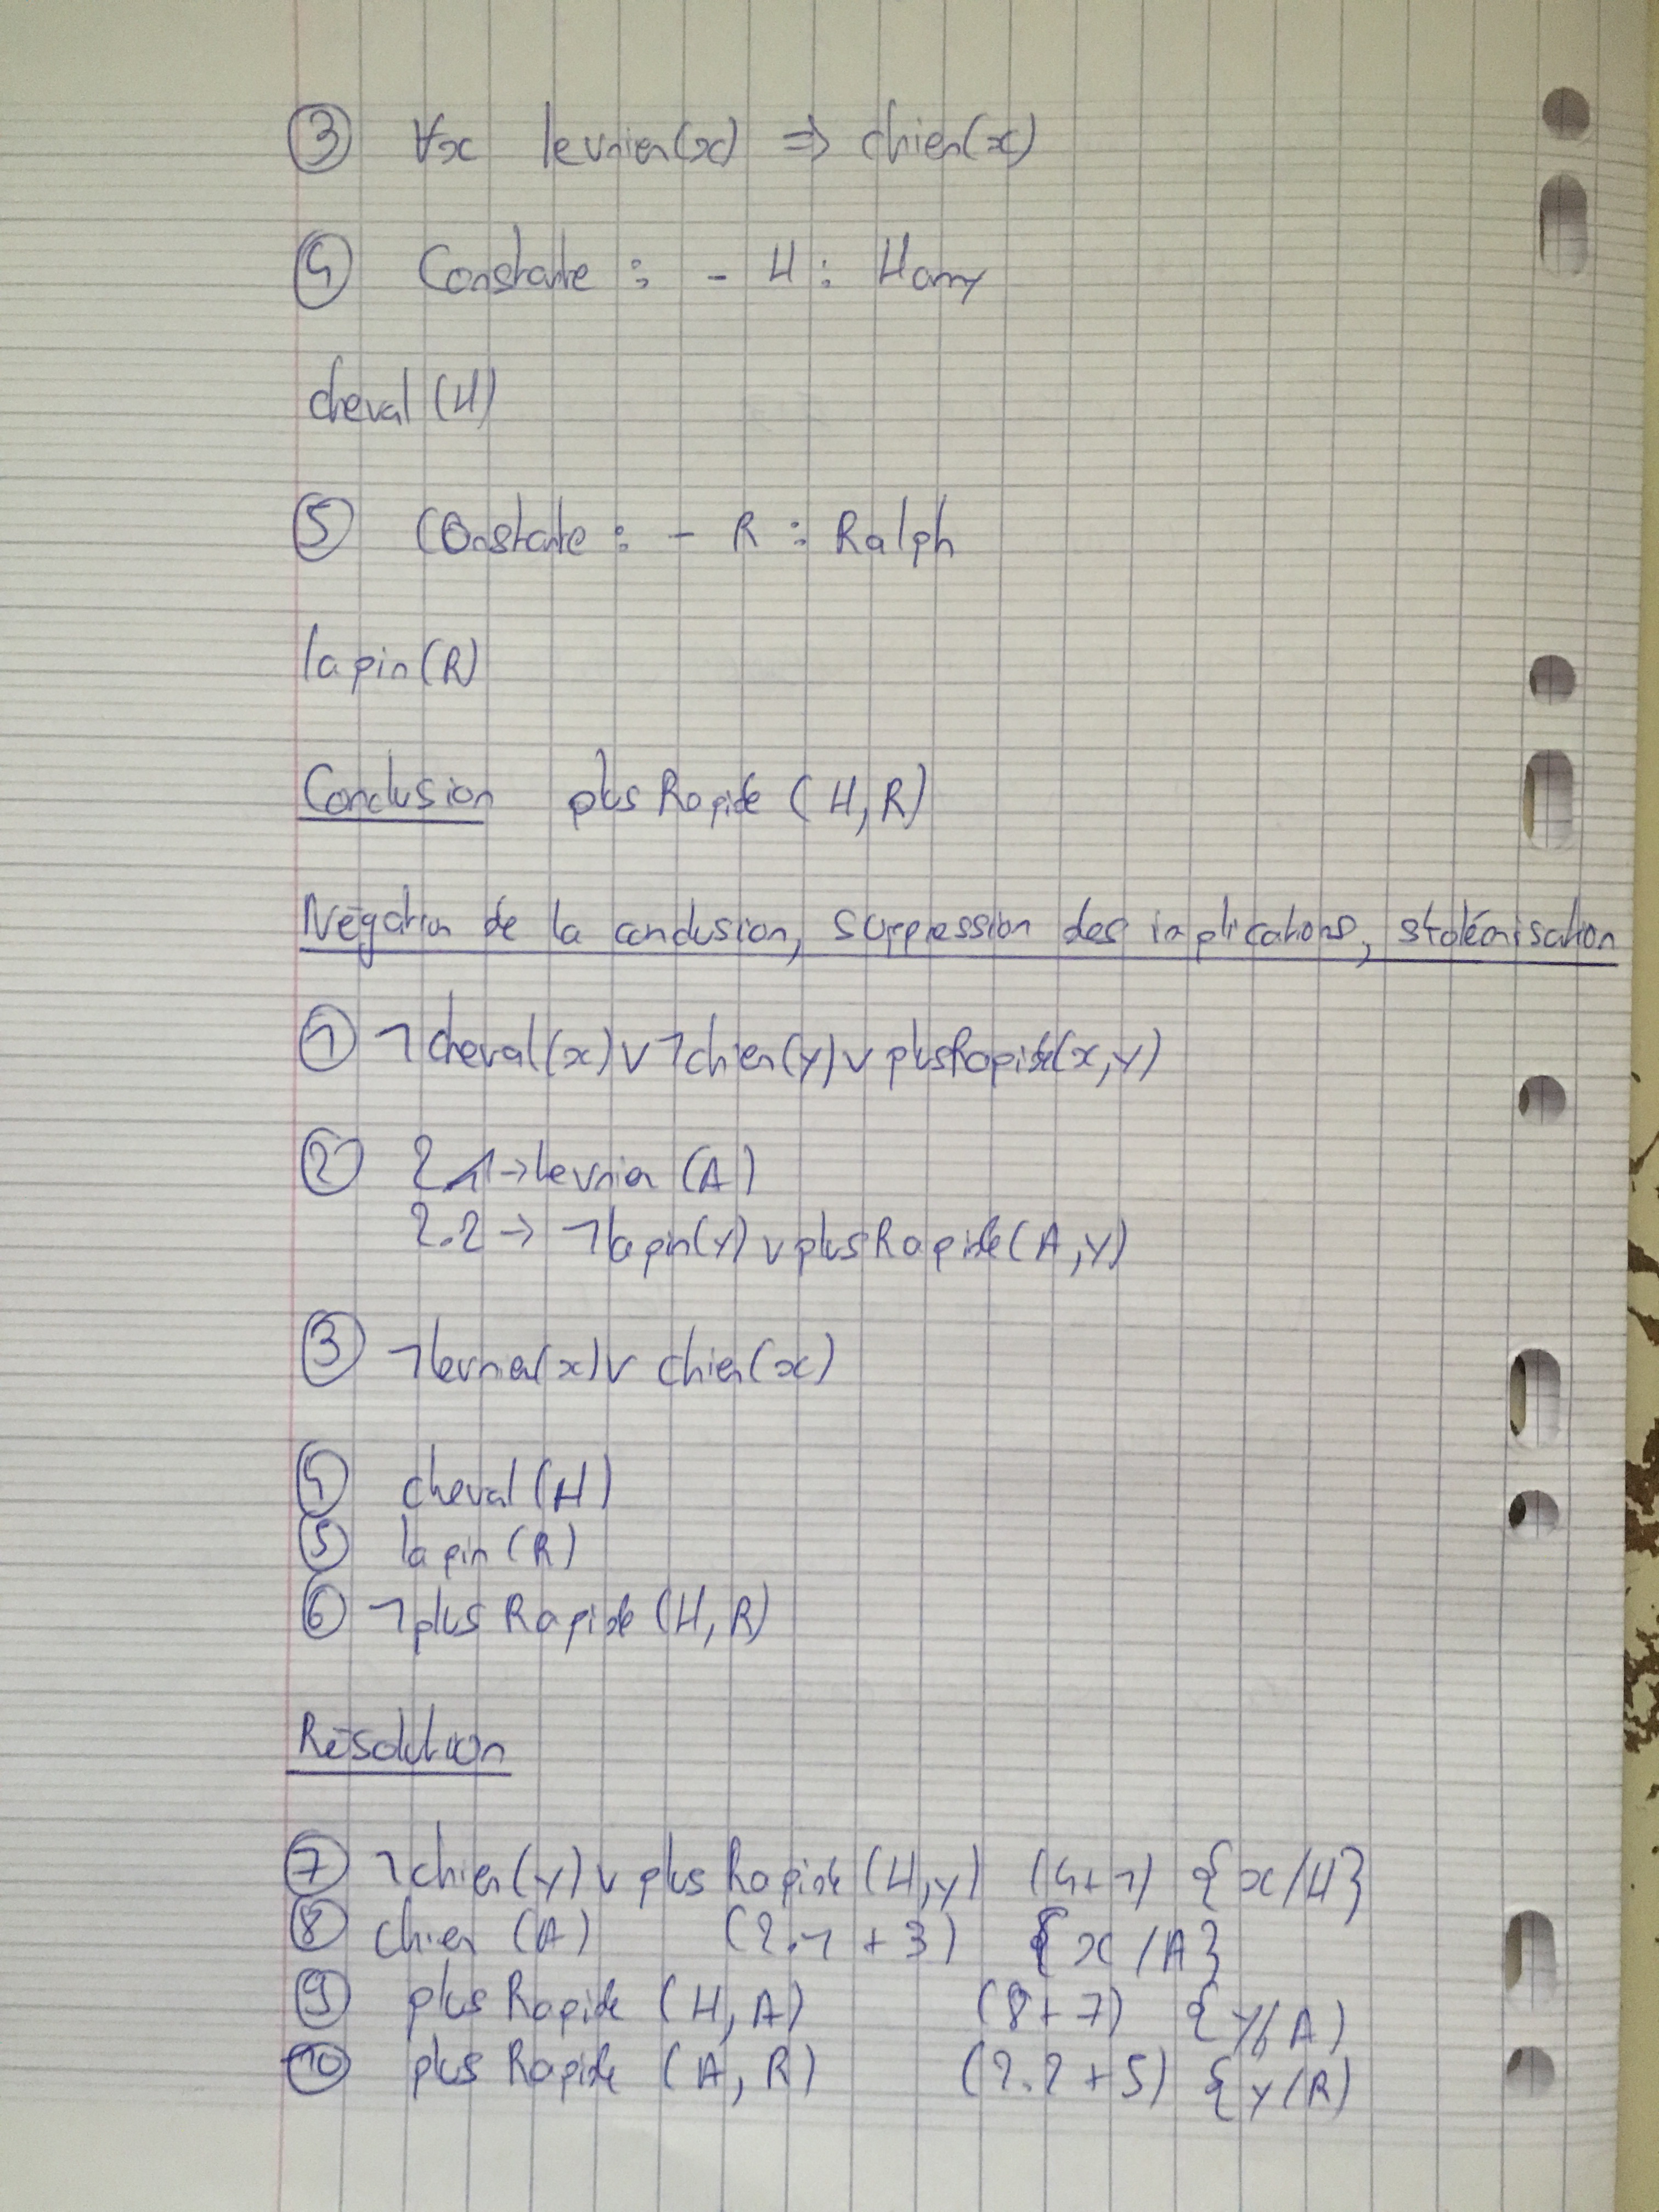 ③ ∀x levrier(x) ⇒ chien(x)
④ Constante : - H : Harry
cheval (H)
⑤ Constante : - R : Ralph
lapin(R)
Conclusion plusRapide (H,R)
Négation de la conclusion, suppression des implications, skolémisation
① ¬cheval(x) ∨ ¬chien(y) ∨ plusRapide(x,y)
② 2.1 → levrier (A)
2.2 → ¬lapin(y) ∨ plusRapide(A,y)
③ ¬levrier(x) ∨ chien(x)
④ cheval (H)
⑤ lapin (R)
⑥ ¬plusRapide (H,R)
Résolution
⑦ ¬chien(y) ∨ plusRapide (H,y) (4+1) {x/H}
⑧ chien (A) (2.1 + 3) {x/A}
⑨ plusRapide (H,A) (8+7) {y/A)
⑩ plusRapide (A,R) (2.2+5) {y/R)